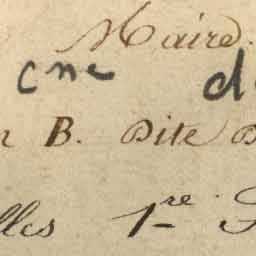 Maire.
cne d
B. Dite
lles 1re